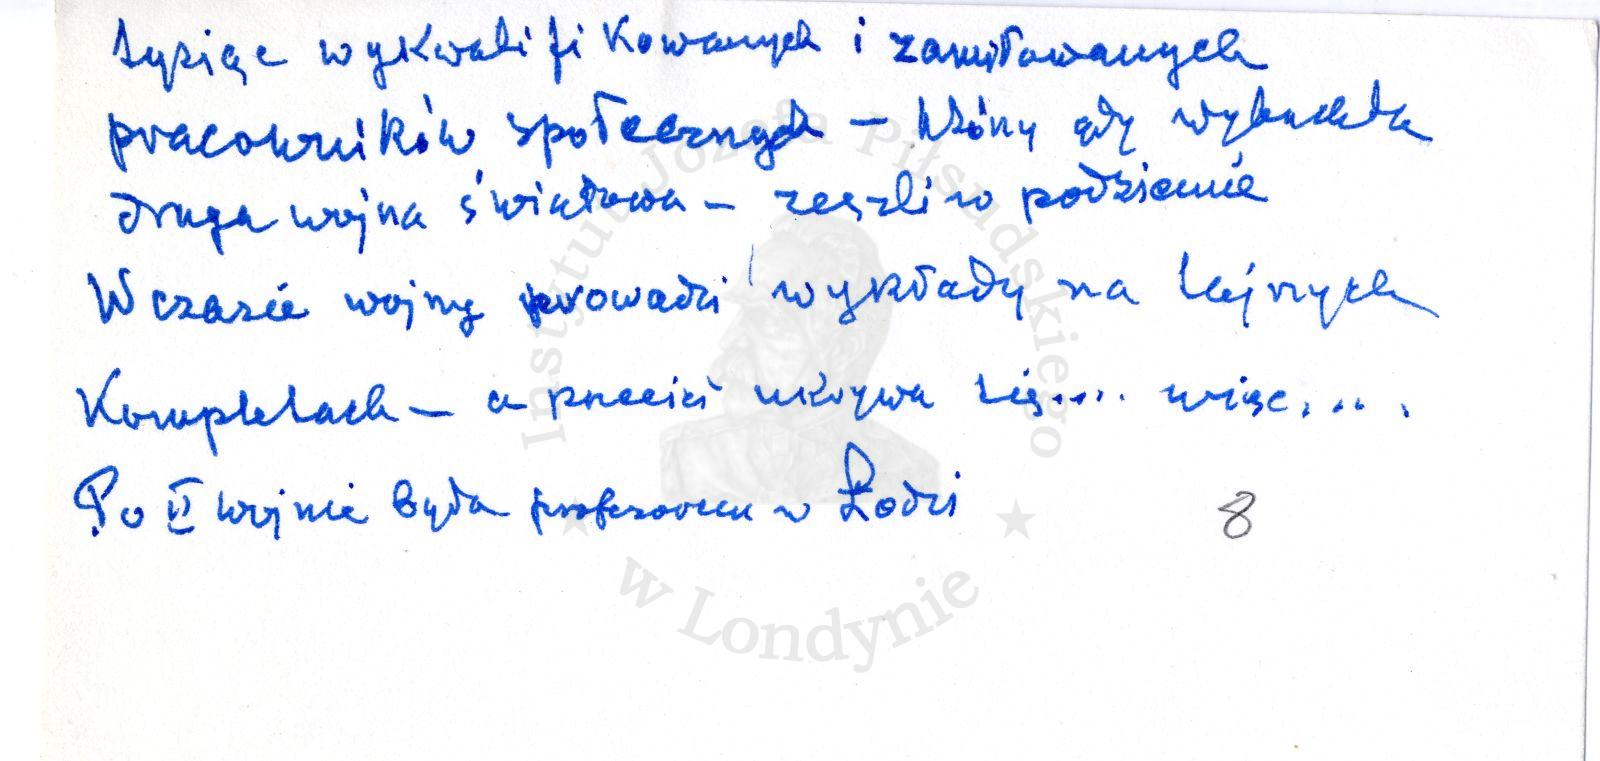 tysiąc wykwalifikowanych i zamiłowanych
pracowników społecznych – którzy gdy wybuchła
druga wojna światowa – zeszli w podziemie
W czasie wojny prowadzi wykłady na tajnych
Kompletach – a przecież ukrywa się.... więc....
Po II wojnie była profesorem w Łodzi
8
Instytut Józefa Piłsudskiego
w Londynie